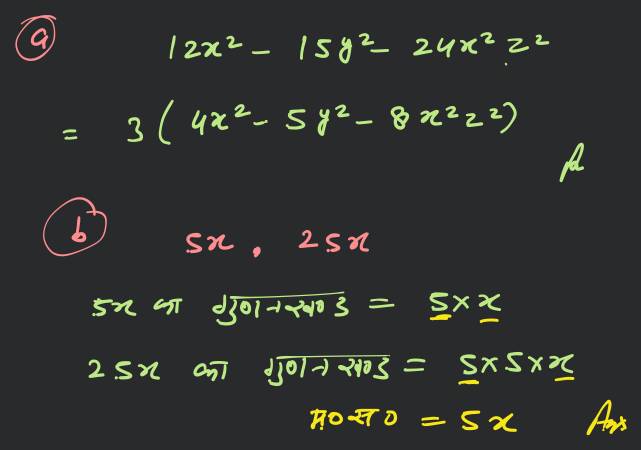 a 12x² - 15y² - 24x²z²
= 3(4x² - 5y² - 8x²z²)
b 5x, 25x
5x का गुणनखण्ड = 5×x
25x का गुणनखण्ड = 5×5×x
म०स० = 5x Ans